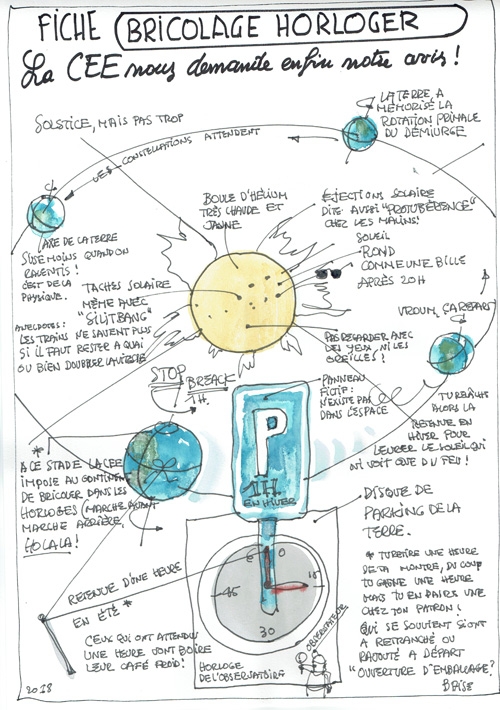 FICHE BRICOLAGE HORLOGER
La CEE nous demande enfin notre avis !
SOLSTICE, MAIS PAS TROP
LES CONSTELLATIONS ATTENDENT
LA TERRE A
MÉMORISÉ LA
ROTATION PRIMALE
DU DÉMIURGE
BOULE D'HÉLIUM
TRÈS CHAUDE ET
JAUNE
ÉJECTIONS SOLAIRE
DITE AUSSI "PROTUBÉRENCE"
CHEZ LES MALINS!
SOLEIL
ROND
COMME UNE BILLE
APRÈS 20H
AXE DE LA TERRE
S'USE MOINS QUAND ON
RALENTIS !
C'EST DE LA
PHYSIQUE.
TACHES SOLAIRE
MÊME AVEC
"SILITBANG"
ANECDOTES:
LES TRAINS NE SAVENT PLUS
SI IL FAUT RESTER A QUAI
OU BIEN DOUBLER LA VITESSE
VROUM, ÇA REPART
PAS REGARDER AVEC
DES YEUX, NI LES
OREILLES !
STOP
BREACK
1H.
PANNEAU
FICTIF:
N'EXISTE PAS
DANS L'ESPACE
P
1H
EN HIVER
TU RELÂCHE
ALORS LA
RETENUE EN
HIVER POUR
LEURRER LE SOLEIL QUI
N'Y VOIT QUE DU FEU !
* A CE STADE LA CEE
IMPOSE AU CONTINENT
DE BRICOLER DANS LES
HORLOGES (MARCHE AVANT
MARCHE ARRIÈRE,
HOLALA !
DISQUE DE
PARKING DE LA
TERRE.
RETENUE D'UNE HEURE
EN ÉTÉ *
CEUX QUI ONT ATTENDU
UNE HEURE VONT BOIRE
LEUR CAFÉ FROID!
0
15
30
45
HORLOGE
DE L'OBSERVATOIRE
OBSERVATEUR
* TU RETIRE UNE HEURE
DE TA MONTRE, DU COUP
TU GAGNE UNE HEURE
MAIS TU EN PAIRS UNE
CHEZ TON PATRON !
QUI SE SOUVIENT SI ON T
A RETRANCHÉ OU
RAJOUTÉ A DÉPART
"OUVERTURE D'EMBALLAGE?
2018